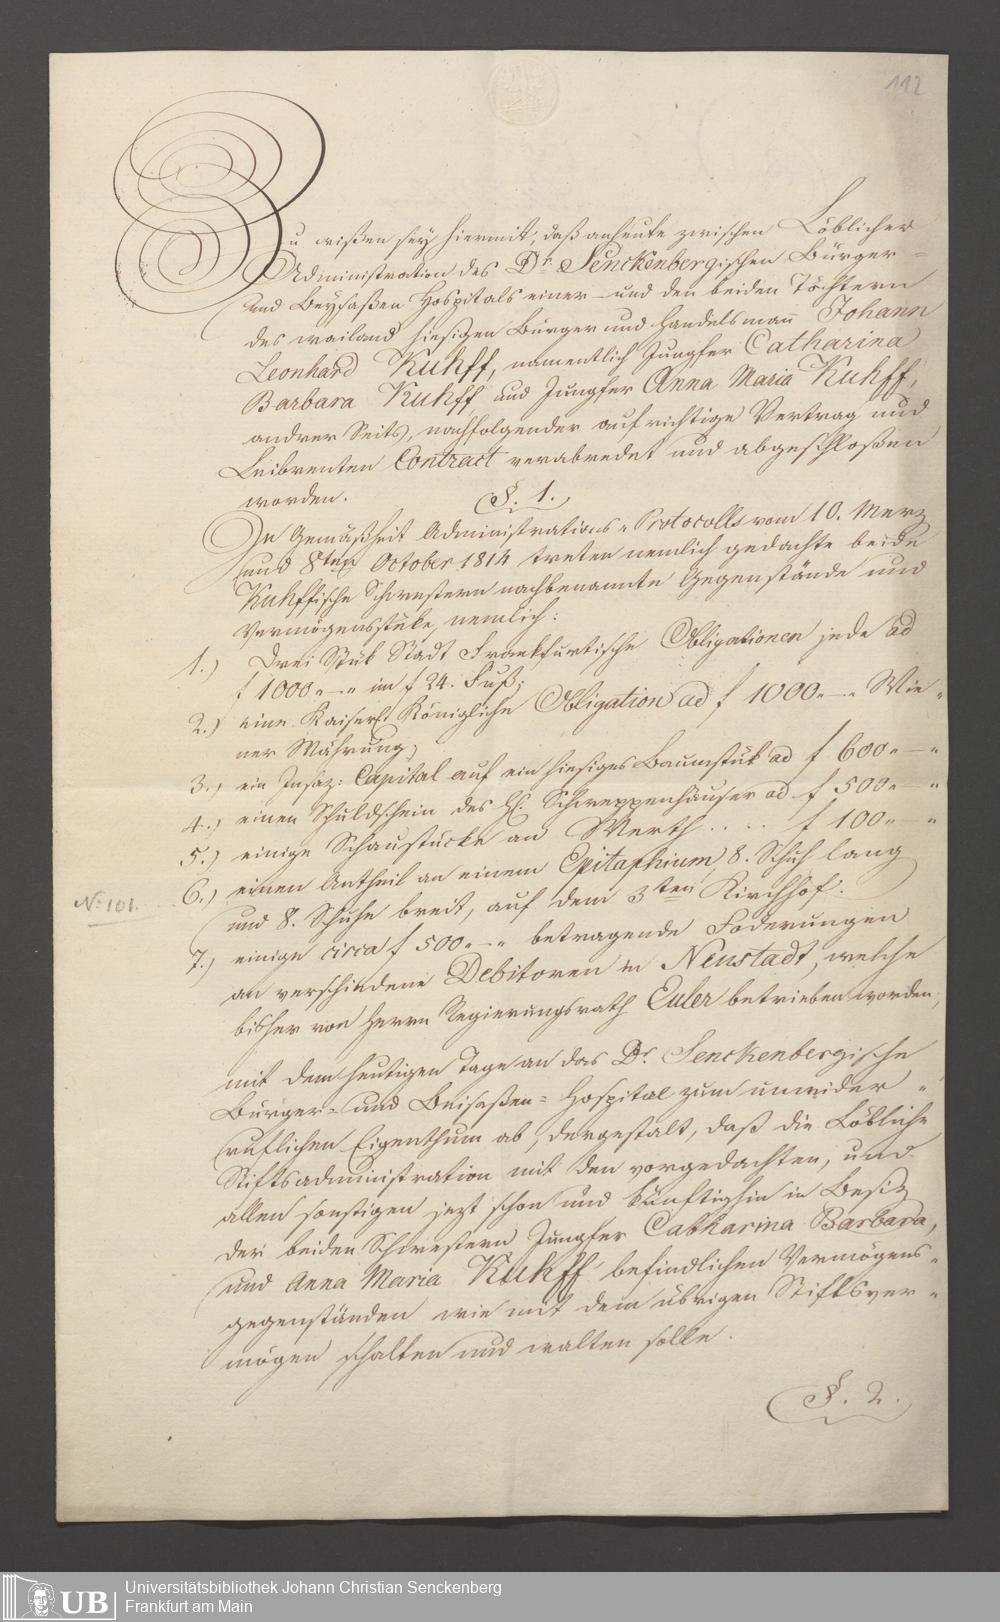 112
Zu wißen sey hiermit, daß anheute zwischen Löblicher
Administration des Dr. Senckenbergischen Bürger-
und Beysaßen Hospitals einer- und den beiden Töchtern
des weiland hiesigen Bürger und Handelsmann Johann
Leonhard Kuhff, namentlich Jungfer Catharina
Barbara Kuhff und Jungfer Anna Maria Kuhff,
andrer Seits, nachfolgender aufrichtige Vertrag und
Leibrenten Contract verabredet und abgeschloßen
worden.
§. 1.
In Gemäßheit Administrations-Protocolls vom 10. Merz
und 8ten October 1814 treten nemlich gedachte beide
Kuhffische Schwestern nachbenannte Gegenstände und
Vermögensstüke, nemlich:
1.) Drei Stük Stadt Frankfurtische Obligationen jede ad
f 1000 „—„ im f 24. Fuß;
2.) eine Kaiserl. Königliche Obligation ad f 1000 „—„ Wie-
ner Währung;
3.) ein Insaz: Capital auf ein hiesiges Baumstük ad f 600 „—„
4.) einen Schuldschein des H. Schweppenhäuser ad f 500 „—„
5.) einige Schaustücke an Werth .... f 100 „—„
6.) einen Antheil an einem Epitaphium, 8. Schuh lang
No. 101. und 8. Schuhe breit, auf dem 3ten Kirchhof.
7.) einige circa f 500 „—„ betragende Foderungen
an verschiedene Debitoren in Neustadt, welche
bisher von Herrn Regierungsrath Euler betrieben worden,
mit dem heutigen Tage an das Dr. Senckenbergische
Bürger- und Beisaßen-Hospital zum unwider-
ruflichen Eigenthum ab, dergestalt, daß die Löbliche
Stiftsadministration mit den vorgedachten, und
allen sonstigen jezt schon und künftighin in Besiz
der beiden Schwestern Jungfer Catharina Barbara,
und Anna Maria Kuhff befindlichen Vermögens-
gegenständen wie mit dem übrigen Stiftsver-
mögen schalten und walten solle.
§. 2.
UB
Universitätsbibliothek Johann Christian Senckenberg
Frankfurt am Main